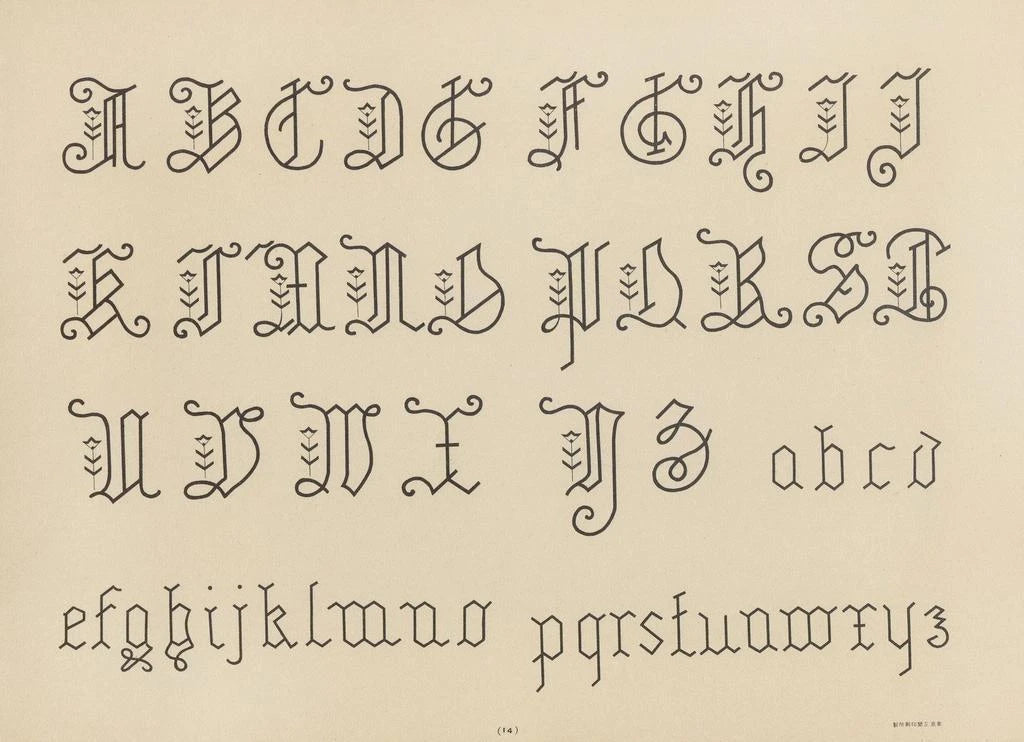 A B C D E F G H I J
K L M N O P Q R S T
U V W X Y Z a b c d
e f g h i j k l m n o p q r s t u v w x y z
(14)